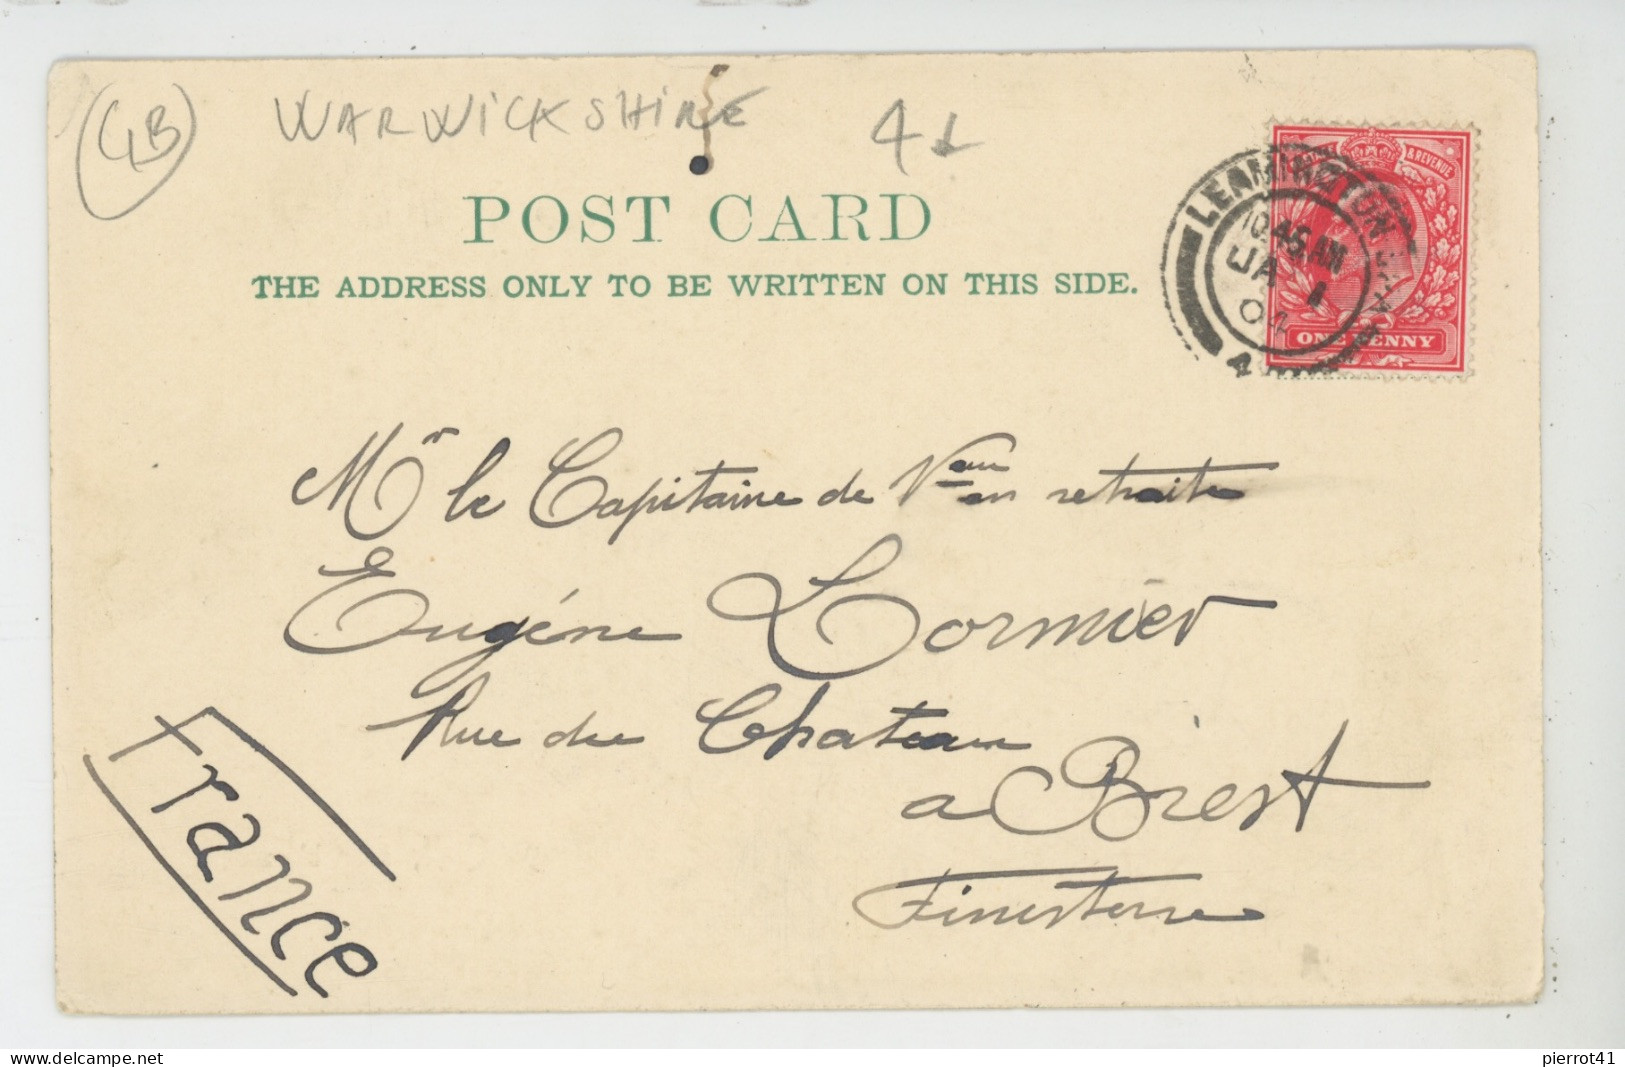 GB
WARWICKSHIRE
4
POST CARD
THE ADDRESS ONLY TO BE WRITTEN ON THIS SIDE.
& REVENUE
ONE PENNY
LEAMINGTON
10.45 AM
JA 1
04
4
Mr le Capitaine de Veau en retraite
Eugéne Lormier
Rue du Chateau
a Brest
Finisterre
France
pierrot41